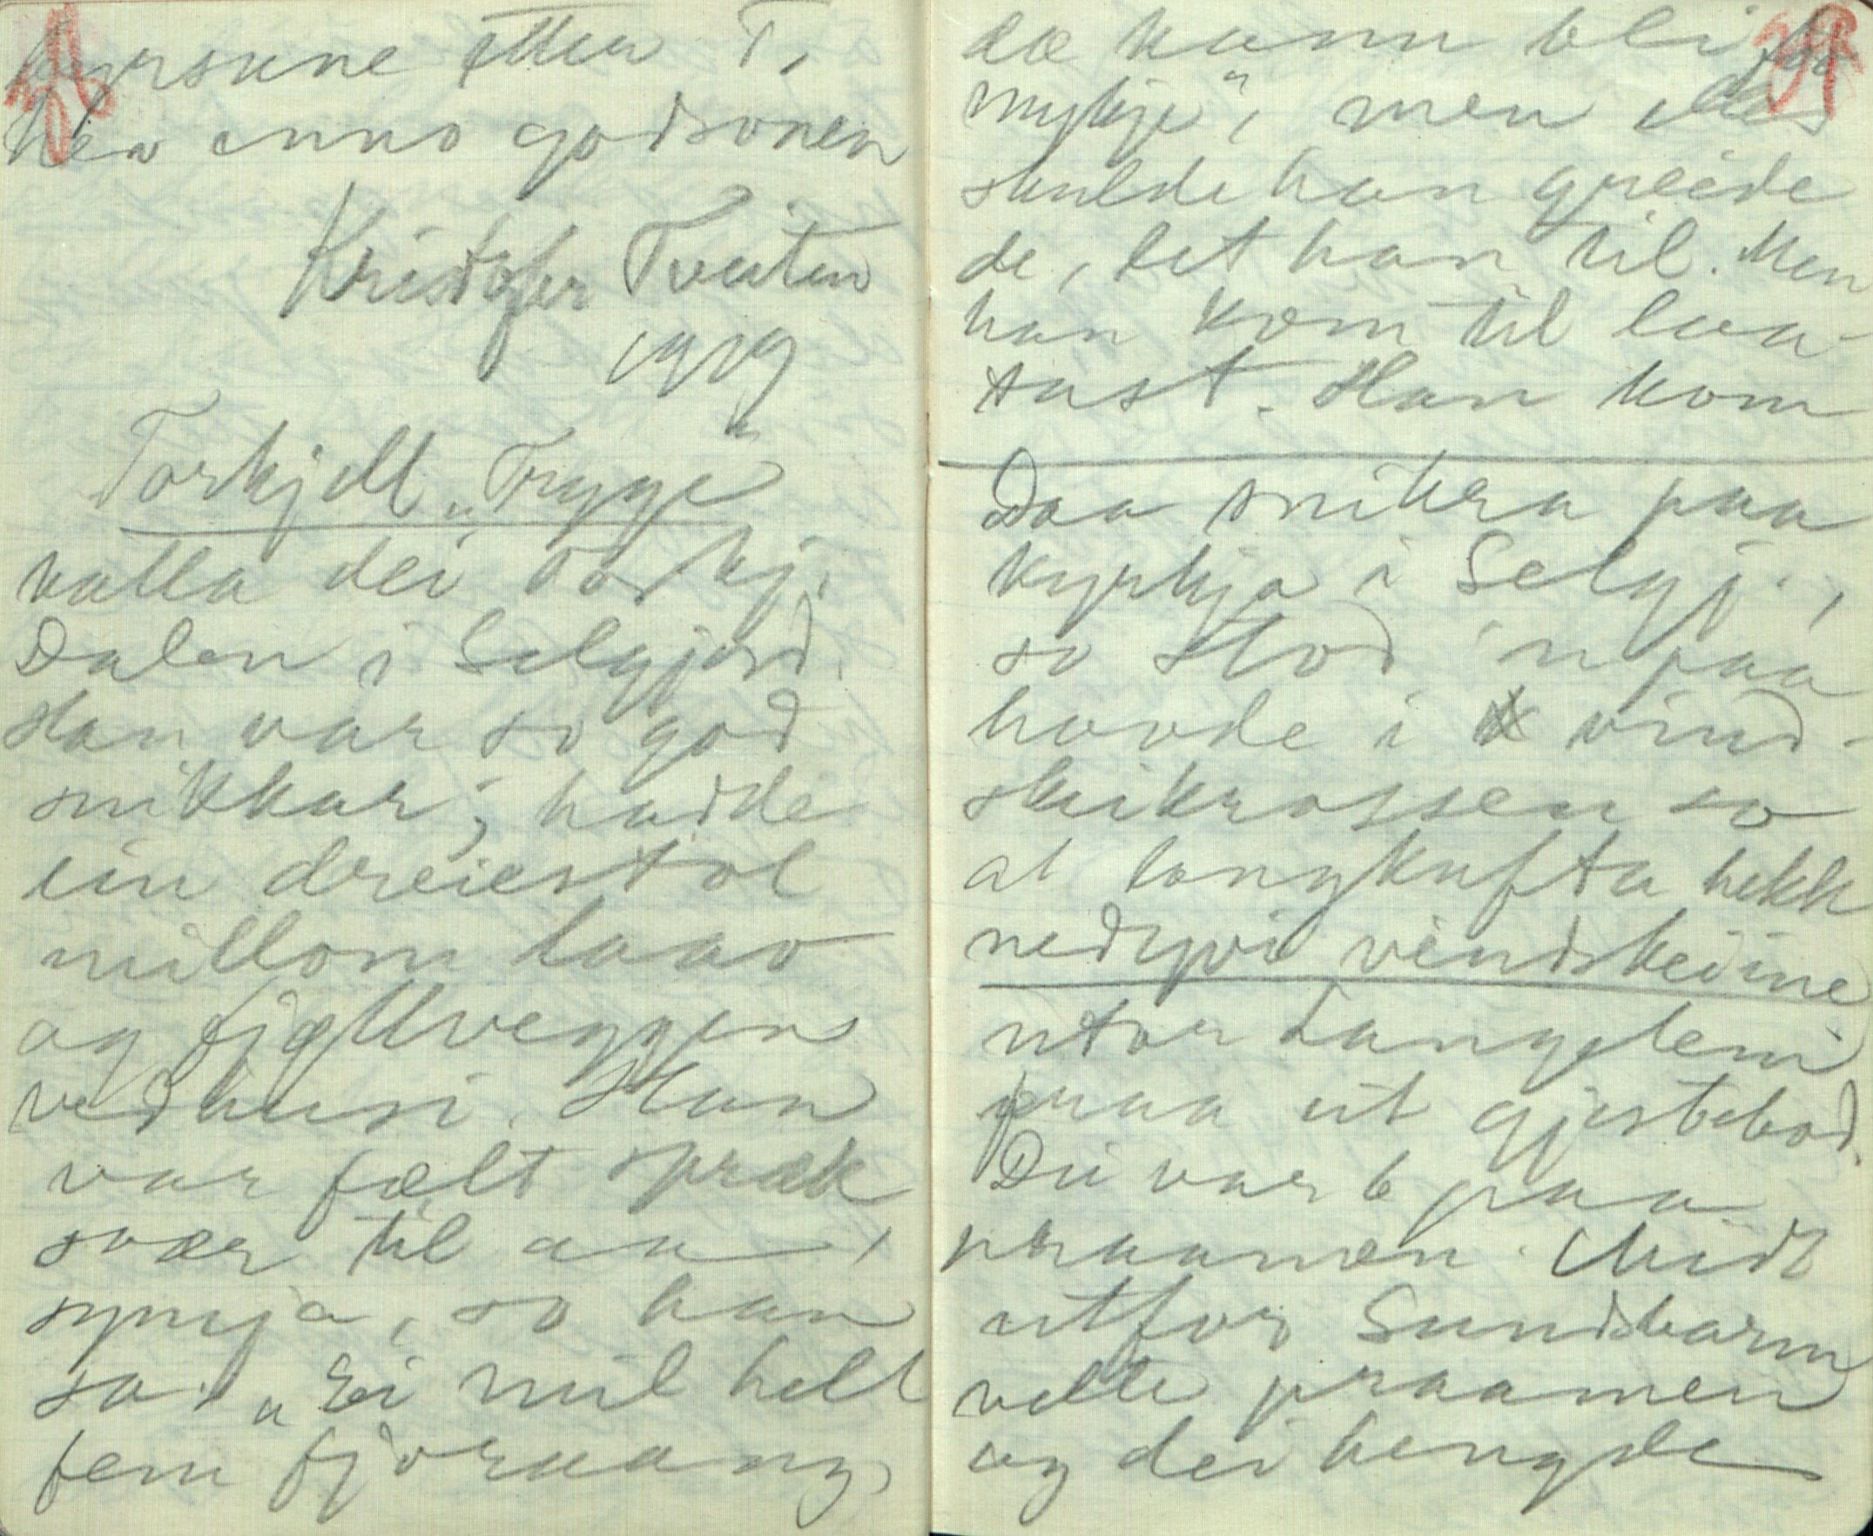 etter T,
hev enno godsonen
Kristofer Tveiten
1919
Torkjell "Trygge"
kalla dei Torkj.
Dalen i Selgjord.
Han var so god
snikkar; hadde
ein dreiestol
millom laav
og fjøllveggen
ved husi. Han
var fælt spræk
svær til aa
symja, so han
sa: "Ei mil helt
fem fjoraang,
dæ kann bli for
mykje", men
skulde han greide
de, let han til. Men
han kom til laa-
tast. Han kom
Daa snikra paa
kyrkja i Selgj.,
so stod 'n paa
hovde i vind-
skikrossen so
at langkufta hekk
nedyvi vindskeiine
utor Langlem
paa eit gjestebod.
Dei var 6 paa
praamen. Midt
utfor Sundsbarm
velte praamen
og dei hengde